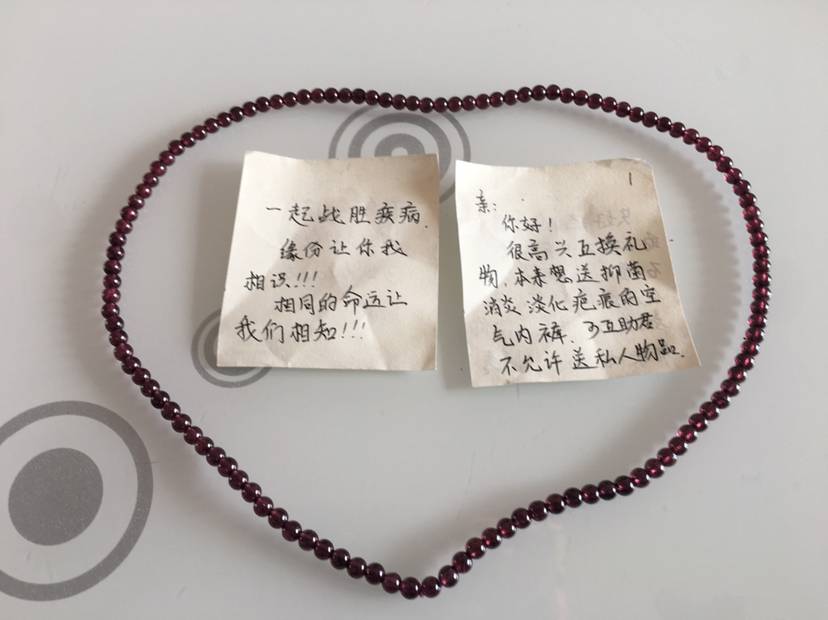 一起战胜疾病.
缘份让你我
相识!!!
相同的命运让
我们相知!!!
1
亲:
你好!
很高兴互换礼
物,本来想送抑菌
消炎淡化疤痕的空
气内裤、可互助君
不允许送私人物品.